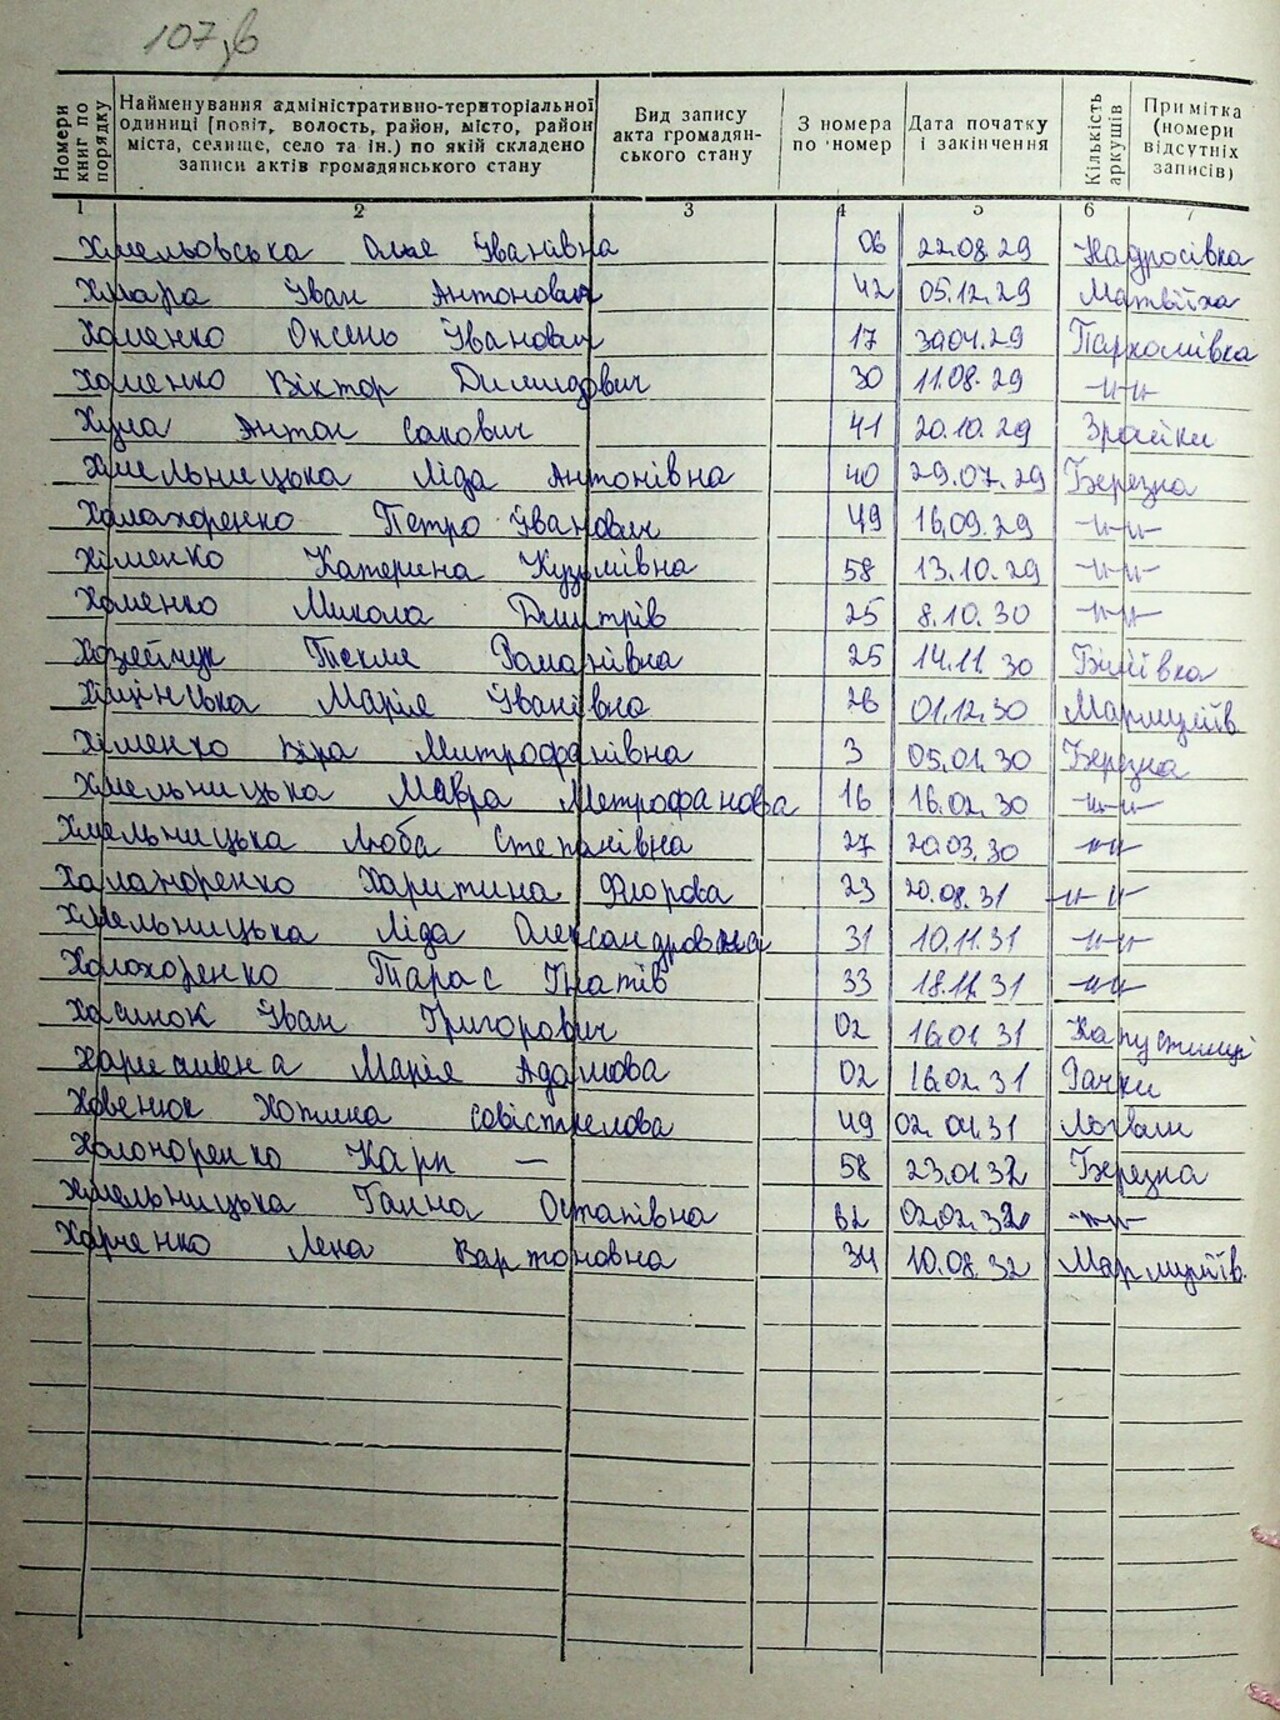 107,в
Номери книг по порядку
Найменування адміністративно-територіальної одиниці (повіт, волость, район, місто, район міста, селище, село та ін.) по якій складено записи актів громадянського стану
Вид запису акта громадянського стану
З номера по номер
Дата початку і закінчення
Кількість аркушів
Примітка (номери відсутніх записів)
1 2 3 4 5 6 7
Хмельовська Ольга Іванівна 06 22.08.29 Надросівка
Хмара Іван Антонович 42 05.12.29 Матвіїха
Хоменко Оксень Іванович 17 30.04.29 Пархомівка
Хоменко Віктор Демидович 30 11.08.29 -"-"-
Антон 41 20.10.29 Зрайки
Хмельницька Ліда Антонівна 40 29.07.29 Березна
Холохоренко Петро Іванович 49 16.09.29 -"-"-
Хіменко Катерина Кузьмівна 58 13.10.29 -"-"-
Хоменко Микола Дмитрів 25 8.10.30 -"-"-
Хозейчук Текля Романівна 25 14.11.30
Марія Іванівна 26 01.12.30
Хіменко Віра Митрофанівна 3 05.01.30 Березна
Хмельницька Мавра Метрофанова 16 16.02.30 -"-"-
Хмельницька Люба Степанівна 27 20.03.30 -"-"-
Харитина 23 20.08.31 -"-"-
Хмельницька Ліда Олександровна 31 10.11.31 -"-"-
Холохоренко Тарас Гнатів 33 18.11.31 -"-"-
Хасинок Іван Григорович 02 16.01.31
Марія Адамова 02 16.02.31 Рачки
49 02.04.31
Холохоренко Карп — 58 23.01.32 Березна
Хмельницька Ганна Остапівна 62 02.02.32 -"-"-
Харченко Лена 34 10.08.32